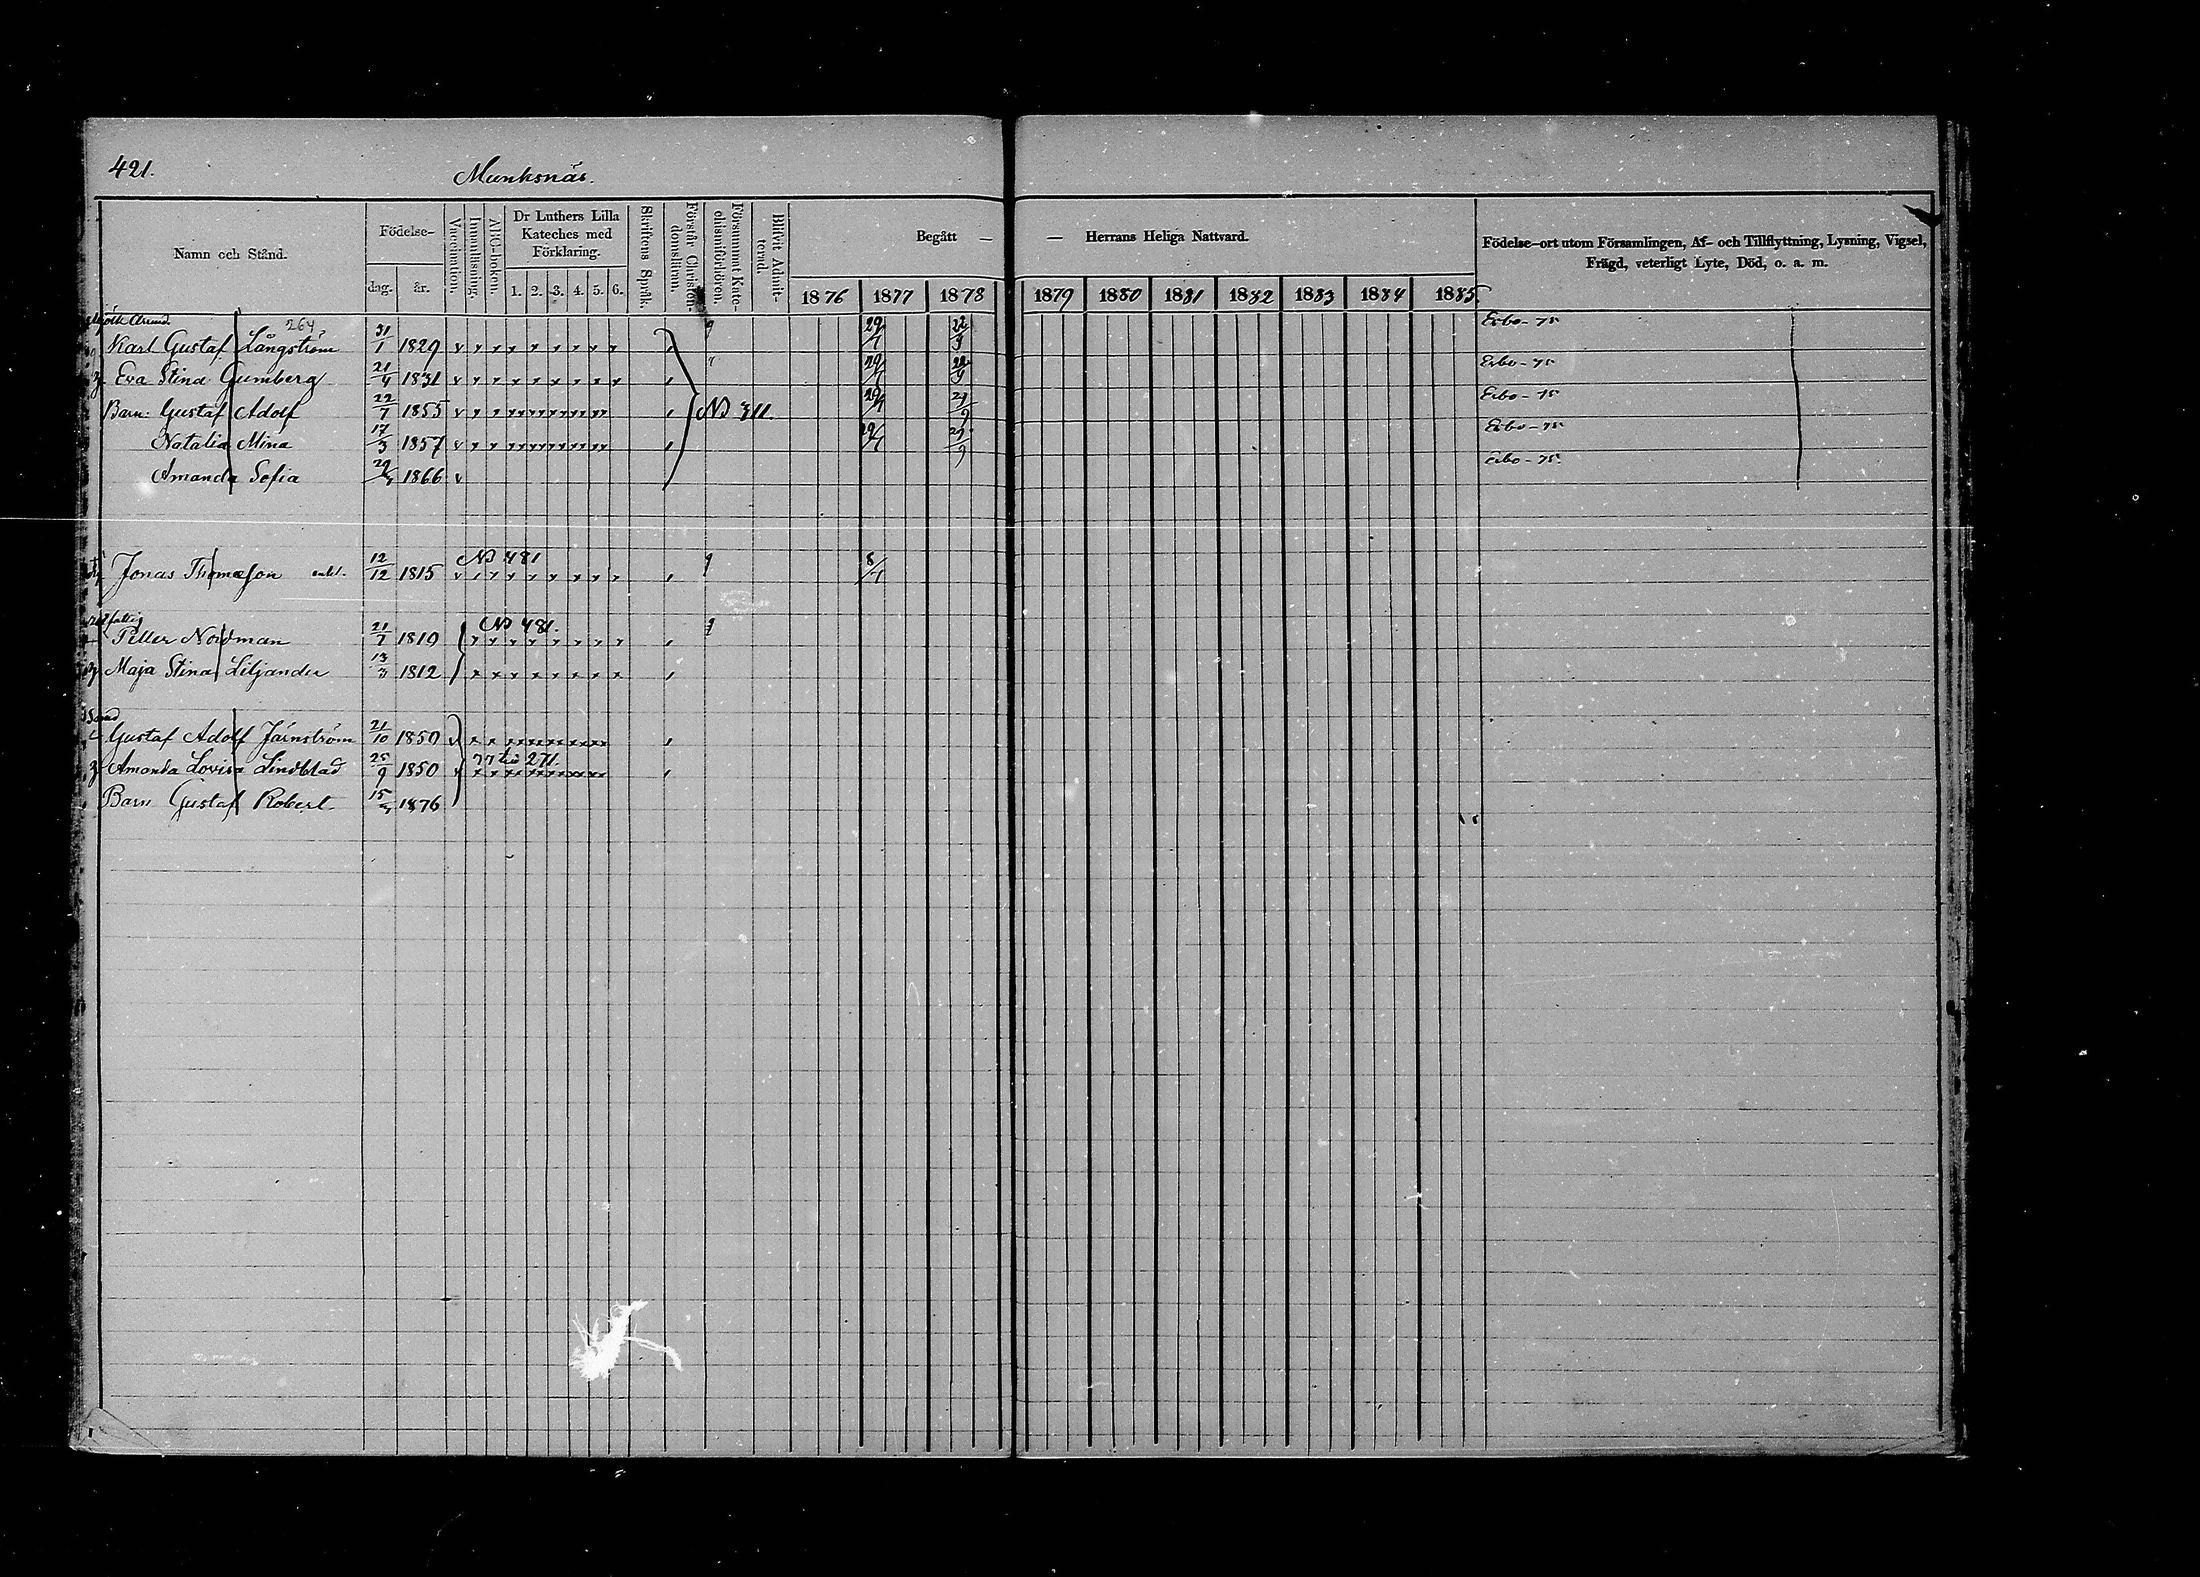 421.
Munksnäs.
Namn och Stånd.
Födelse-
dag.
år.
Vaccination.
Innanläsning.
ABC-boken.
Dr Luthers Lilla
Kateches med
Förklaring.
1. 2. 3. 4. 5. 6.
Skriftens Språk.
Förstår Christen-
domsläran.
Försummat Kate-
chismiförhören.
Blifvit Admit-
terad.
Begått — — Herrans Heliga Nattvard.
1876 1877 1878 1879 1880 1881 1882 1883 1884 1885.
Födelse-ort utom Församlingen, Af- och Tillflyttning, Lysning, Vigsel,
Frägd, veterligt Lyte, Död, o. a. m.
264
Karl Gustaf Långström 31/1 1829 v 29/7 22/9 Esbo - 75
Eva Stina Gumberg 21/4 1831 v 29/7 22/9 Esbo - 75
Barn: Gustaf Adolf 22/7 1855 v N 311. 29/7 29/9 Esbo - 75
Natalia Mina 17/3 1857 v 29/7 29/9 Esbo - 75
Amanda Sofia 1866 v Esbo - 75.
Jonas Thomasson enkl. 12/12 1815 N 481 v 8/7
Petter Nordman 21/7 1810 N 481.
Maja Stina Liljander 13/3 1812
Gustaf Adolf Järnström 21/10 1850 v
Amanda Lovisa Lindblad 25/9 1850 v 77 till 271.
Barn Gustaf Robert 1876